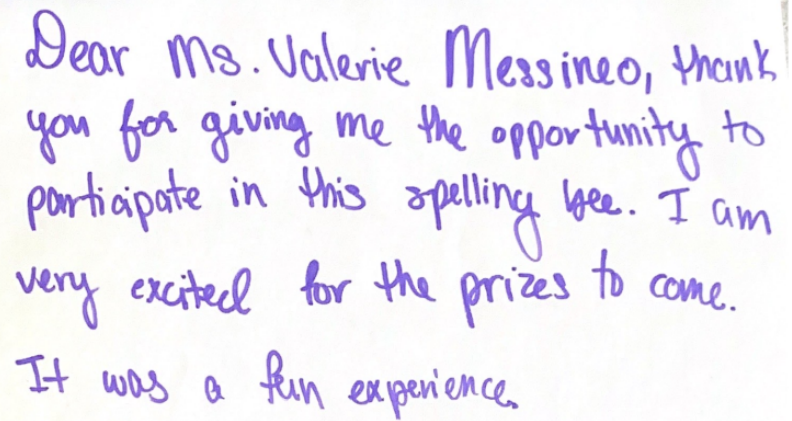 Dear Ms. Valerie Messineo, thank
you for giving me the opportunity to
participate in this spelling bee. I am
very excited for the prizes to come.
It was a fun experience.